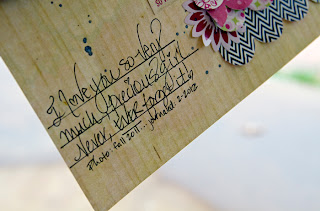 I love you so very
much precious girl
Never, ever forget it
Photo: fall 2011... journaled: 2-2012